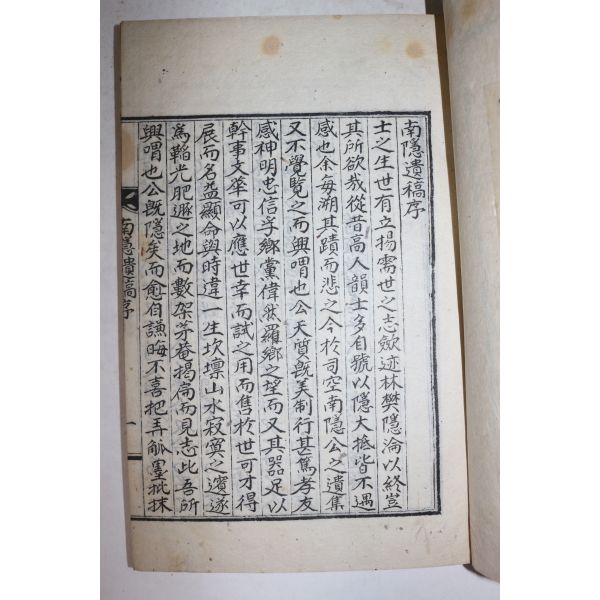 南隱遺稿序
士之生世有立揚需世之志歛迹林樊隱淪以終豈
其所欲哉從昔高人韻士多自號以隱大抵皆不遇
感也余每溯其蹟而悲之今於司空南隱公之遺集
又不覺覽之而興喟也公天質旣美制行甚篤孝友
感神明忠信孚鄕黨偉然羅鄕之望而又其器足以
幹事文華可以應世幸而試之用而售於世可才得
展而名益顯命與時違一生坎壈山水寂寞之濱遂
爲韜光肥遯之地而數架茅菴揭扁而見志此吾所
興喟也公旣隱矣而愈自謙晦不喜把弄觚墨批抹
南隱遺稿序
一